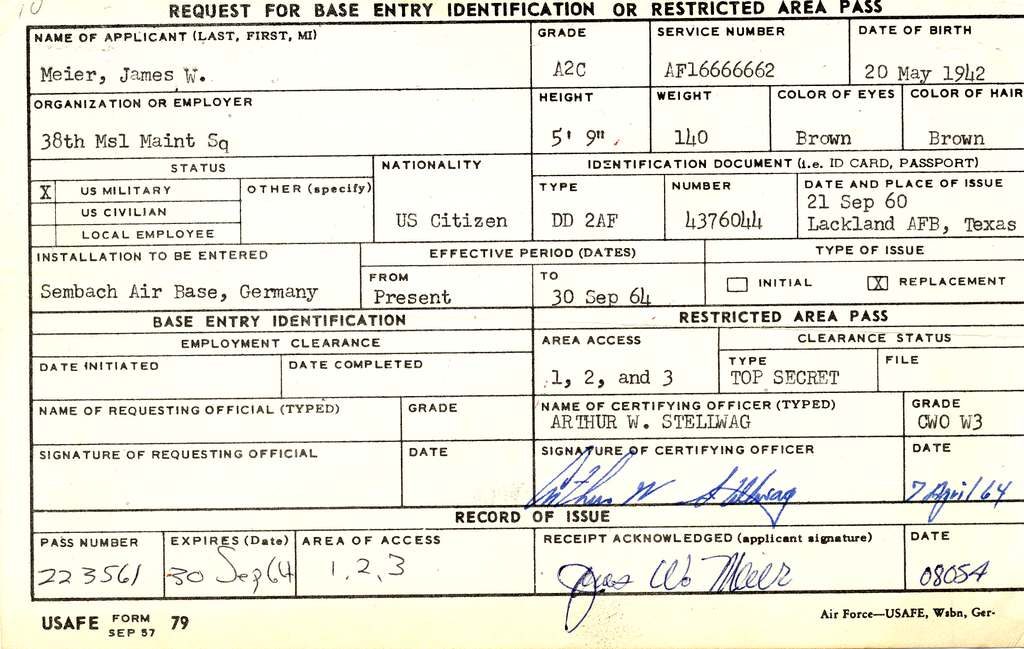 REQUEST FOR BASE ENTRY IDENTIFICATION OR RESTRICTED AREA PASS
NAME OF APPLICANT (LAST, FIRST, MI)
Meier, James W.
GRADE
A2C
SERVICE NUMBER
AF16666662
DATE OF BIRTH
20 May 1942
ORGANIZATION OR EMPLOYER
38th Msl Maint Sq
HEIGHT
5' 9"
WEIGHT
140
COLOR OF EYES
Brown
COLOR OF HAIR
Brown
STATUS
X US MILITARY
US CIVILIAN
LOCAL EMPLOYEE
OTHER (specify)
NATIONALITY
US Citizen
IDENTIFICATION DOCUMENT (i.e. ID CARD, PASSPORT)
TYPE
DD 2AF
NUMBER
4376044
DATE AND PLACE OF ISSUE
21 Sep 60
Lackland AFB, Texas
INSTALLATION TO BE ENTERED
Sembach Air Base, Germany
EFFECTIVE PERIOD (DATES)
FROM
Present
TO
30 Sep 64
TYPE OF ISSUE
INITIAL
X REPLACEMENT
BASE ENTRY IDENTIFICATION
EMPLOYMENT CLEARANCE
DATE INITIATED
DATE COMPLETED
RESTRICTED AREA PASS
AREA ACCESS
1, 2, and 3
CLEARANCE STATUS
TYPE
TOP SECRET
FILE
NAME OF REQUESTING OFFICIAL (TYPED)
GRADE
NAME OF CERTIFYING OFFICER (TYPED)
ARTHUR W. STELLWAG
GRADE
CWO W3
SIGNATURE OF REQUESTING OFFICIAL
DATE
SIGNATURE OF CERTIFYING OFFICER
Arthur W Stellwag
DATE
7 April 64
RECORD OF ISSUE
PASS NUMBER
223561
EXPIRES (Date)
30 Sep 64
AREA OF ACCESS
1, 2, 3
RECEIPT ACKNOWLEDGED (applicant signature)
James W. Meier
DATE
USAFE FORM 79
SEP 57
Air Force—USAFE, Wsbn, Ger-